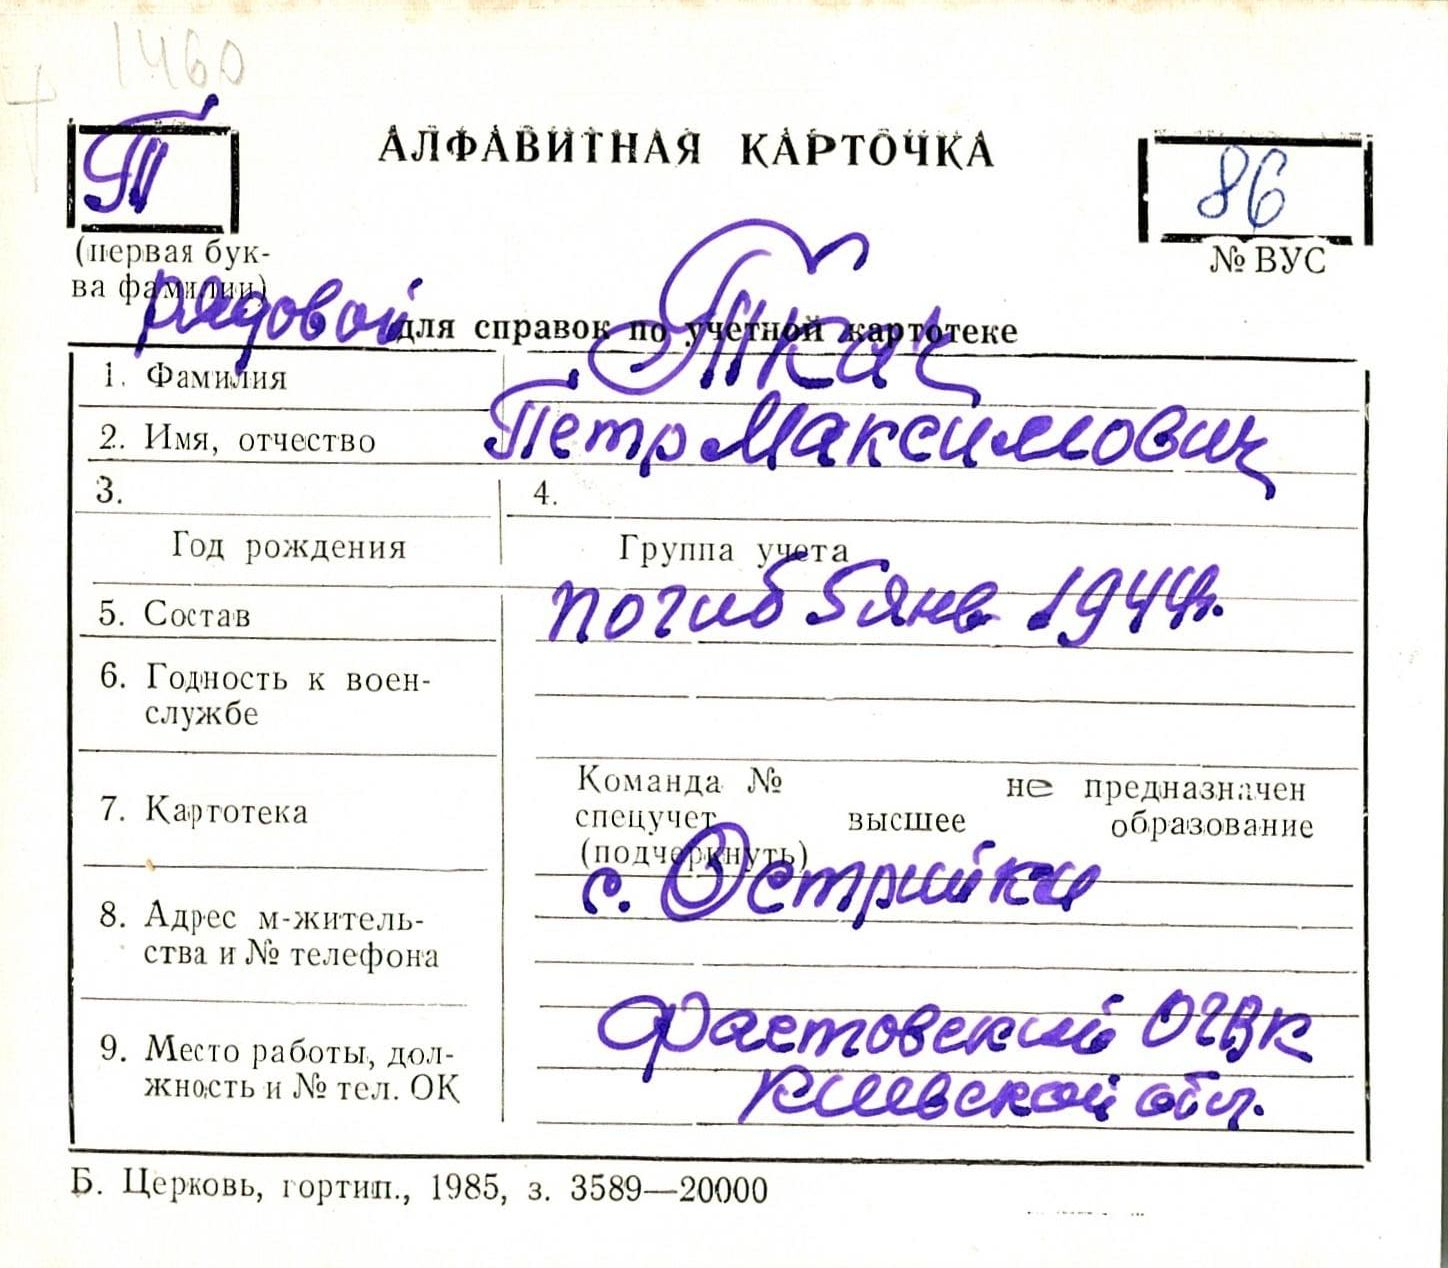 1460
Т
АЛФАВИТНАЯ КАРТОЧКА
86
(первая бук-
ва фамилии)
№ ВУС
рядовой
для справок по учетной картотеке
1. Фамилия Ткач
2. Имя, отчество Петр Максимович
3. 4.
Год рождения Группа учета
5. Состав погиб 5 янв 1944г.
6. Годность к воен-
службе
Команда № не предназначен
7. Картотека спецучет высшее образование
(подчеркнуть)
с. Острийки
8. Адрес м-житель-
ства и № телефона
Фастовский ОГВК
9. Место работы, дол-
жность и № тел. ОК
Киевской обл.
Б. Церковь, гортип., 1985, з. 3589—20000